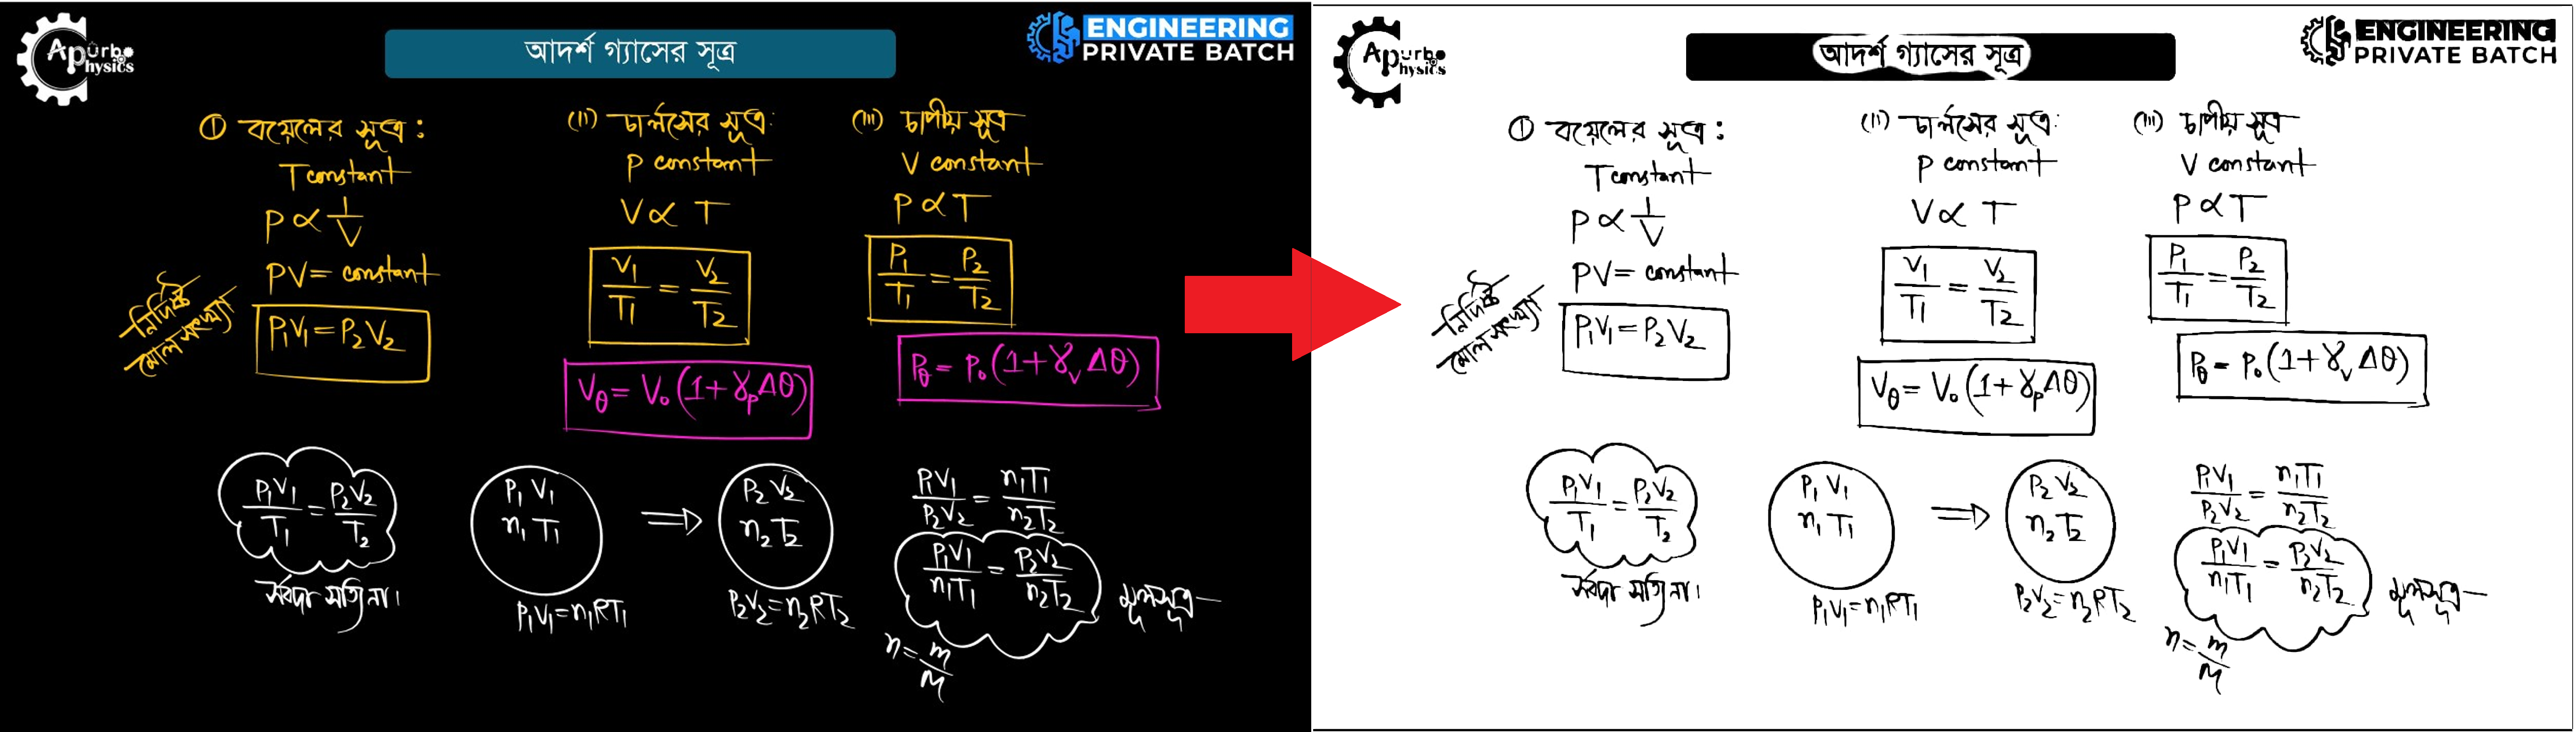 Apurbo Physics
আদর্শ গ্যাসের সূত্র
ENGINEERING
PRIVATE BATCH
(i) বয়েলের সূত্র :
T constant
P ∝ 1/V
PV = constant
P₁V₁ = P₂V₂
নির্দিষ্ট
মোল সংখ্যা
(ii) চার্লসের সূত্র:
P constant
V ∝ T
V₁/T₁ = V₂/T₂
V_θ = V₀ (1 + γ_p Δθ)
(iii) চাপীয় সূত্র
V constant
P ∝ T
P₁/T₁ = P₂/T₂
P_θ = P₀ (1 + γ_v Δθ)
P₁V₁/T₁ = P₂V₂/T₂
সর্বদা সত্যি না।
P₁ V₁
n₁ T₁
P₁V₁ = n₁RT₁
⇒
P₂ V₂
n₂ T₂
P₂V₂ = n₂RT₂
P₁V₁/P₂V₂ = n₁T₁/n₂T₂
P₁V₁/n₁T₁ = P₂V₂/n₂T₂
মূলসূত্র
n = m/M
Apurbo Physics
আদর্শ গ্যাসের সূত্র
ENGINEERING
PRIVATE BATCH
(i) বয়েলের সূত্র :
T constant
P ∝ 1/V
PV = constant
P₁V₁ = P₂V₂
নির্দিষ্ট
মোল সংখ্যা
(ii) চার্লসের সূত্র:
P constant
V ∝ T
V₁/T₁ = V₂/T₂
V_θ = V₀ (1 + γ_p Δθ)
(iii) চাপীয় সূত্র
V constant
P ∝ T
P₁/T₁ = P₂/T₂
P_θ = P₀ (1 + γ_v Δθ)
P₁V₁/T₁ = P₂V₂/T₂
সর্বদা সত্যি না।
P₁ V₁
n₁ T₁
P₁V₁ = n₁RT₁
⇒
P₂ V₂
n₂ T₂
P₂V₂ = n₂RT₂
P₁V₁/P₂V₂ = n₁T₁/n₂T₂
P₁V₁/n₁T₁ = P₂V₂/n₂T₂
মূলসূত্র
n = m/M